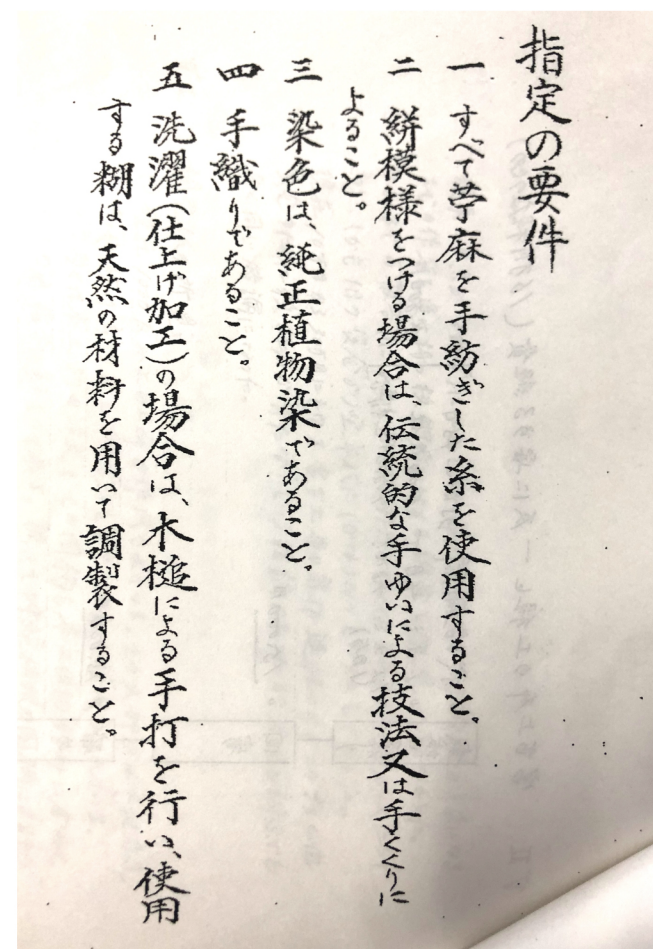 指定の要件
一 すべて苧麻を手紡ぎした糸を使用すること。
二 絣模様をつける場合は、伝統的な手ゆいによる技法又は手くくりに
よること。
三 染色は、純正植物染であること。
四 手織りであること。
五 洗濯(仕上げ加工)の場合は、木槌による手打を行い、使用
する糊は、天然の材料を用いて調製すること。